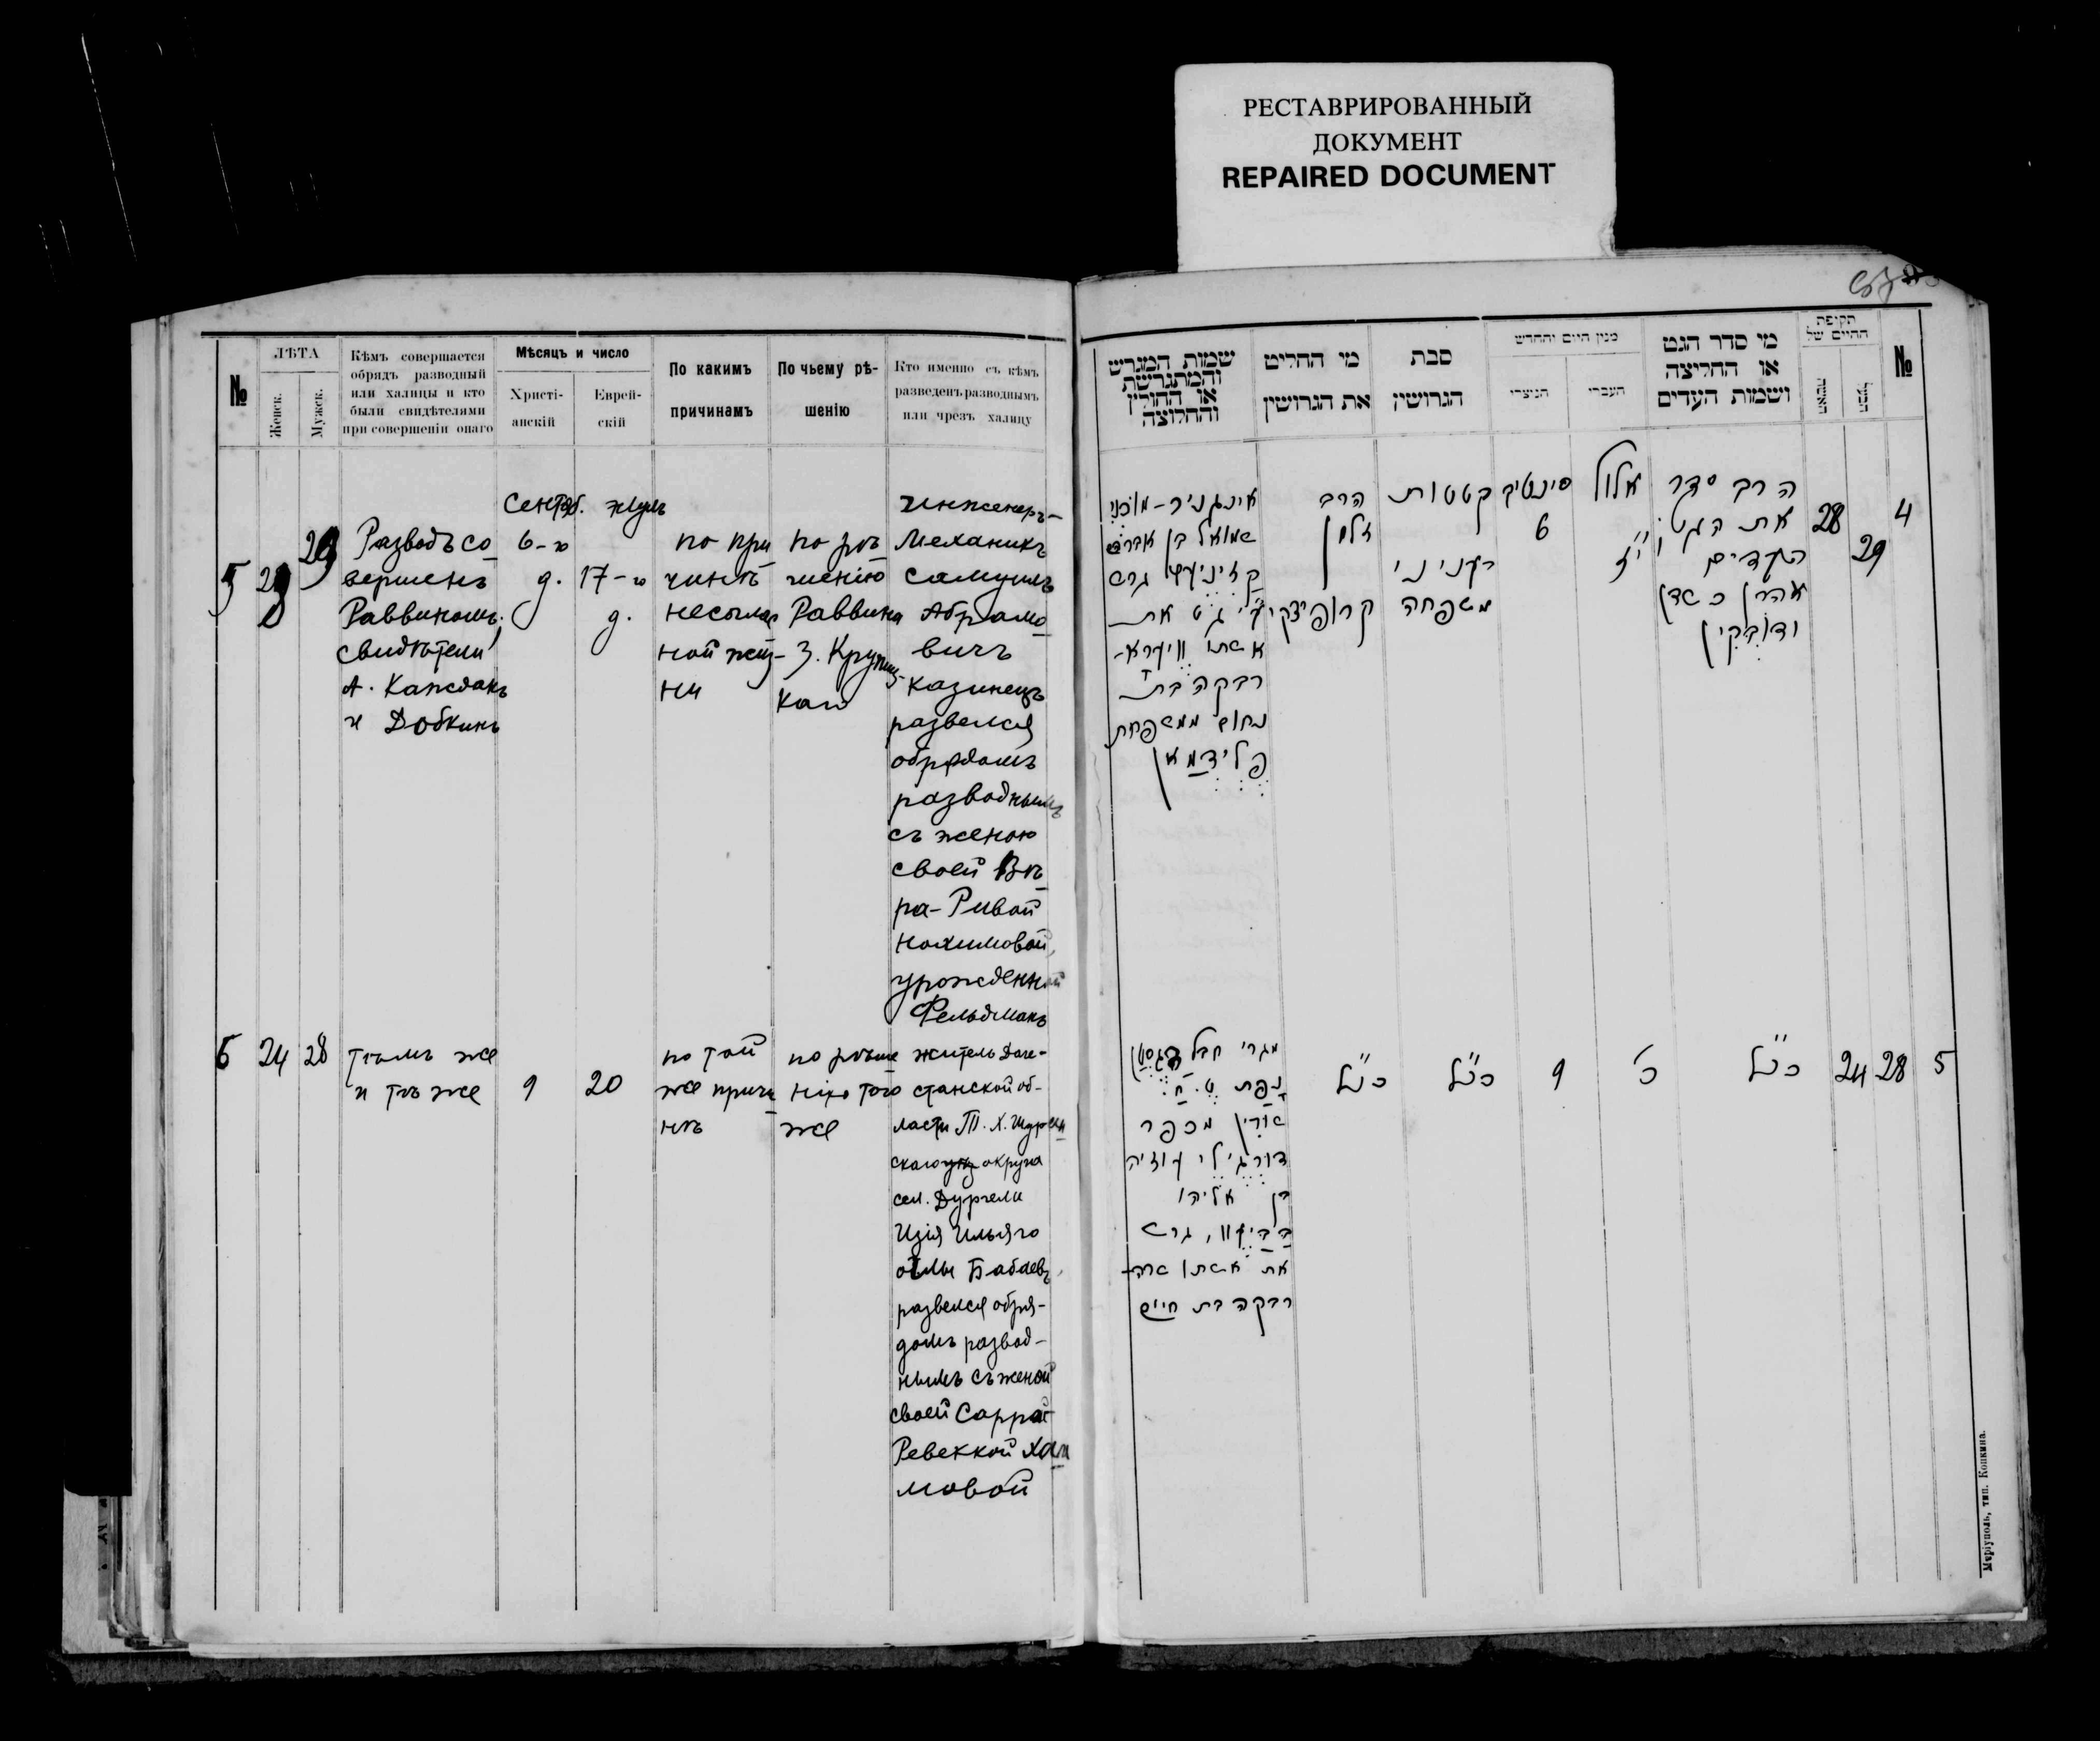 РЕСТАВРИРОВАННЫЙ
ДОКУМЕНТ
REPAIRED DOCUMENT
№
ЛѢТА
Женск.
Мужск.
Кѣмъ совершается
обрядъ разводный
или халицы и кто
были свидѣтелями
при совершеніи онаго
Мѣсяцъ и число
Христі-
анскій
Еврей-
скій
По какимъ
причинамъ
По чьему рѣ-
шенію
Кто именно съ кѣмъ
разведенъ разводнымъ
или чрезъ халицу
5
29
Разводъ со
вершенъ
Раввиномъ.
Свидѣтели
А. Каждакъ
и Добкинъ
Сентяб.
6-го
д.
17-го
д.
по при
чинѣ
несоглас
ной жиз-
ни
по рѣ
шенію
Раввина
З. Крупиц-
каго
Инженеръ-
Механикъ
Самуилъ
Абрамо
вичъ
Казинецъ
развелся
обрядомъ
разводнымъ
съ женою
своей Вѣ
ра-Ривой
Нохимовой,
урожденной
Фельдманъ
6
24
28
тѣмъ же
и тѣ же
9
20
по той
же причи
нѣ
по рѣше
нію того
же
житель Даге-
станской об-
ласти Т. Х. Шурин
скаго округа
сел. Дургели
Изія Ильяго
оглы Бабаевъ
развелся обря-
домъ развод-
нымъ съ женой
своей Сарра-
Ревеккой Хаи
мовой
שמות המגרש
והמתגרשת
או החולץ
והחלוצה
מי החליט
את הגרושין
סבת
הגרושין
מנין היום והחדש
הנוצרי
העברי
מי סדר הגט
או החליצה
ושמות העדים
תקופת
החיים של
№
שמואל בן אברהם
גרש
ע״י גט את
אשתו ווירא-
רבקה בת
נחום ממשפחת
פלידמאן
הרב
זלמן
קרופיצקי
קטטות
בעניני
משפחה
6
אלול
י״ז
הרב סדר
את הגט;
העדים
אהרן כשדן
ודובקין
28
29
4
שורין מכפר
דורגילי עוזיה
בן אליהו
גרש
את אשתו שרה-
רבקה בת חיים
כנ״ל
כנ״ל
9
כ׳
כנ״ל
24
28
5
Маріуполь, тип. Копкина.